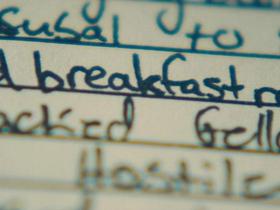 usal to
breakfast
acked Gell
Hostile